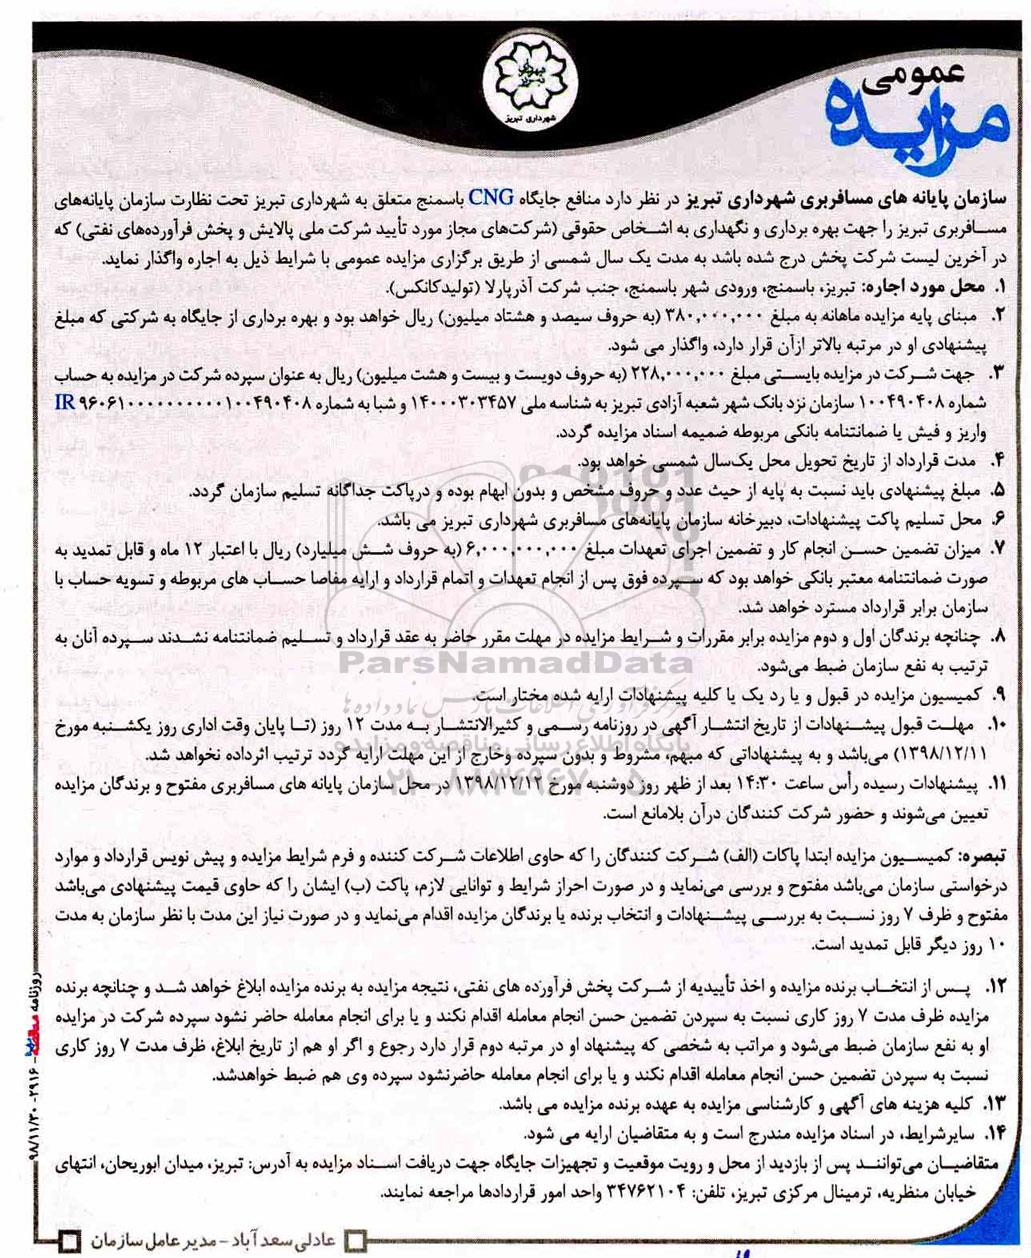 شهرداری تبریز
عمومی
مزایده
سازمان پایانه های مسافربری شهرداری تبریز در نظر دارد منافع جایگاه CNG باسمنج متعلق به شهرداری تبریز تحت نظارت سازمان پایانه‌های
مسافربری تبریز را جهت بهره برداری و نگهداری به اشخاص حقوقی (شرکت‌های مجاز مورد تأیید شرکت ملی پالایش و پخش فرآورده‌های نفتی) که
در آخرین لیست شرکت پخش درج شده باشد به مدت یک سال شمسی از طریق برگزاری مزایده عمومی با شرایط ذیل به اجاره واگذار نماید.
۱. محل مورد اجاره: تبریز، باسمنج، ورودی شهر باسمنج، جنب شرکت آذرپارلا (تولیدکانکس).
۲. مبنای پایه مزایده ماهانه به مبلغ ۳۸۰,۰۰۰,۰۰۰ (به حروف سیصد و هشتاد میلیون) ریال خواهد بود و بهره برداری از جایگاه به شرکتی که مبلغ
پیشنهادی او در مرتبه بالاتر ازآن قرار دارد، واگذار می شود.
۳. جهت شرکت در مزایده بایستی مبلغ ۲۲۸,۰۰۰,۰۰۰ (به حروف دویست و بیست و هشت میلیون) ریال به عنوان سپرده شرکت در مزایده به حساب
شماره ۱۰۰۴۹۰۴۰۸ سازمان نزد بانک شهر شعبه آزادی تبریز به شناسه ملی ۱۴۰۰۰۳۰۳۴۵۷ و شبا به شماره IR ۹۶۰۶۱۰۰۰۰۰۰۰۰۰۰۰۱۰۰۴۹۰۴۰۸
واریز و فیش یا ضمانتنامه بانکی مربوطه ضمیمه اسناد مزایده گردد.
۴. مدت قرارداد از تاریخ تحویل محل یک‌سال شمسی خواهد بود.
۵. مبلغ پیشنهادی باید نسبت به پایه از حیث عدد و حروف مشخص و بدون ابهام بوده و درپاکت جداگانه تسلیم سازمان گردد.
۶. محل تسلیم پاکت پیشنهادات، دبیرخانه سازمان پایانه‌های مسافربری شهرداری تبریز می باشد.
۷. میزان تضمین حسن انجام کار و تضمین اجرای تعهدات مبلغ ۶,۰۰۰,۰۰۰,۰۰۰ (به حروف شش میلیارد) ریال با اعتبار ۱۲ ماه و قابل تمدید به
صورت ضمانتنامه معتبر بانکی خواهد بود که سپرده فوق پس از انجام تعهدات و اتمام قرارداد و ارایه مفاصا حساب های مربوطه و تسویه حساب با
سازمان برابر قرارداد مسترد خواهد شد.
۸. چنانچه برندگان اول و دوم مزایده برابر مقررات و شرایط مزایده در مهلت مقرر حاضر به عقد قرارداد و تسلیم ضمانتنامه نشدند سپرده آنان به
ترتیب به نفع سازمان ضبط می‌شود.
ParsNamadData
۹. کمیسیون مزایده در قبول و یا رد یک یا کلیه پیشنهادات ارایه شده مختار است.
۱۰. مهلت قبول پیشنهادات از تاریخ انتشار آگهی در روزنامه رسمی و کثیرالانتشار به مدت ۱۲ روز (تا پایان وقت اداری روز یکشنبه مورخ
۱۳۹۸/۱۲/۱۱) می‌باشد و به پیشنهاداتی که مبهم، مشروط و بدون سپرده وخارج از این مهلت ارایه گردد ترتیب اثرداده نخواهد شد.
پایگاه اطلاع رسانی مناقصه و مزایده
۱۱. پیشنهادات رسیده رأس ساعت ۱۴:۳۰ بعد از ظهر روز دوشنبه مورخ ۱۳۹۸/۱۲/۱۲ در محل سازمان پایانه های مسافربری مفتوح و برندگان مزایده
۰۲۱-۸۸۳۴۹۶۷۰-۵
تعیین می‌شوند و حضور شرکت کنندگان درآن بلامانع است.
تبصره: کمیسیون مزایده ابتدا پاکات (الف) شرکت کنندگان را که حاوی اطلاعات شرکت کننده و فرم شرایط مزایده و پیش نویس قرارداد و موارد
درخواستی سازمان می‌باشد مفتوح و بررسی می‌نماید و در صورت احراز شرایط و توانایی لازم، پاکت (ب) ایشان را که حاوی قیمت پیشنهادی می‌باشد
مفتوح و ظرف ۷ روز نسبت به بررسی پیشنهادات و انتخاب برنده یا برندگان مزایده اقدام می‌نماید و در صورت نیاز این مدت با نظر سازمان به مدت
۱۰ روز دیگر قابل تمدید است.
۱۲. پس از انتخاب برنده مزایده و اخذ تأییدیه از شرکت پخش فرآورده های نفتی، نتیجه مزایده به برنده مزایده ابلاغ خواهد شد و چنانچه برنده
مزایده ظرف مدت ۷ روز کاری نسبت به سپردن تضمین حسن انجام معامله اقدام نکند و یا برای انجام معامله حاضر نشود سپرده شرکت در مزایده
او به نفع سازمان ضبط می‌شود و مراتب به شخصی که پیشنهاد او در مرتبه دوم قرار دارد رجوع و اگر او هم از تاریخ ابلاغ، ظرف مدت ۷ روز کاری
نسبت به سپردن تضمین حسن انجام معامله اقدام نکند و یا برای انجام معامله حاضرنشود سپرده وی هم ضبط خواهدشد.
۱۳. کلیه هزینه های آگهی و کارشناسی مزایده به عهده برنده مزایده می باشد.
۱۴. سایرشرایط، در اسناد مزایده مندرج است و به متقاضیان ارایه می شود.
متقاضیان می‌توانند پس از بازدید از محل و رویت موقعیت و تجهیزات جایگاه جهت دریافت اسناد مزایده به آدرس: تبریز، میدان ابوریحان، انتهای
خیابان منظریه، ترمینال مرکزی تبریز، تلفن: ۳۴۷۶۲۱۰۴ واحد امور قراردادها مراجعه نمایند.
عادلی سعدآباد - مدیر عامل سازمان
روزنامه - ۲۹۱۶ - ۹۸/۱۱/۳۰